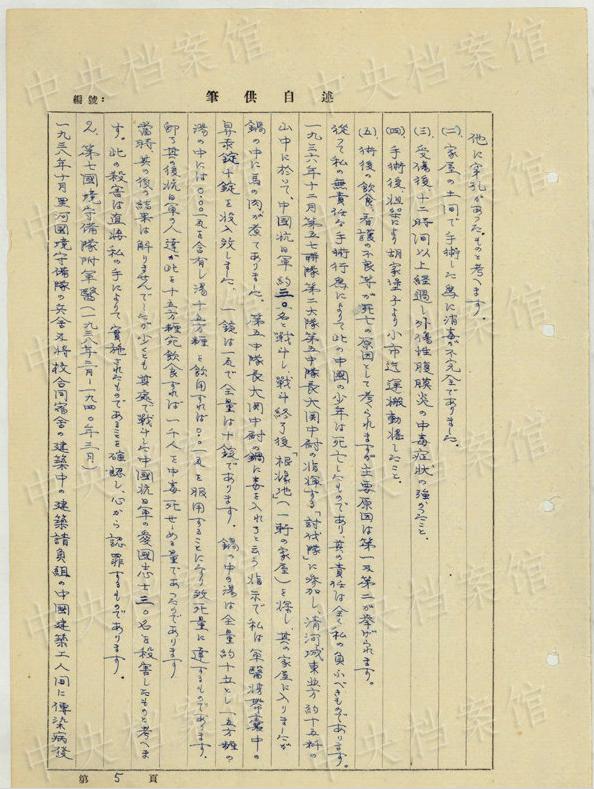 述自供筆
編號：
他に穿孔があつたものと考へます。
(二) 家屋の土間で手術した為に消毒が不完全でありました。
(三) 受傷後、十二時間以上経過し外傷性腹膜炎の中毒症状の強かつたこと。
(四) 手術後、担架により胡家堡子より小市迄運搬動揺したこと。
(五) 術後の飲食、看護の不良等が死亡の原因として考へられますが主要原因は第一及第二が挙げられます。
従つて私の無責任な手術行為によつて此の中国の少年は死亡したものであり其の責任は全く私の負ふべきものであります。
一九三六年十二月第五七聯隊第二大隊第五中隊長大関中尉の指揮する「討伐隊」に参加し、清河城東北方約十五粁の
山中に於いて中国抗日軍約三〇名と戦斗し、戦斗終了後「根據地」(一軒の家屋)を探し、其の家屋に入りましたが
鍋の中に馬の肉が煮てありました。第五中隊長大関中尉が鍋に毒を入れろと云う指示で私は軍醫携帯嚢中の
昇汞錠十錠を投入致しました。一錠は一瓦で全量は十錠であります。鍋の中の湯は全量約十立とし一五方糎の
湯の中には〇.〇一五瓦を含有し湯十五方糎を飲用すれば〇.〇一五瓦を服用することになり致死量に達するものであります。
卽ち其の後抗日軍の人達が此を十五方糎宛飲食すれば一千人を中毒死せしめる量であつたのであります
當時其の後の結果は解りませんでしたが少くとも其處で戦斗した中国抗日軍の愛國志士三〇名を殺害したものと考へま
す。此の殺害は直接私の手によつて実施されたものであることを確認し、心から認罪するものであります。
2、第七國境守備隊附軍醫(一九三八年三月―一九四〇年三月)
一九三八年十月黒河國境守備隊の兵舎及将校合同宿舎の建築中の建築請負組の中國建築工人間に傳染病後
第 5 頁
中央档案馆